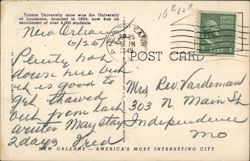 Tulane University once was the University
of Louisiana, founded in 1834; now has an
enrollment of over 4,000 students.
New Orleans
6/25/
Plenty hot
down here but
it is good to
get thawed
out from last
winter May stay
2 days Fred
POST CARD
Mrs Rev. Vardeman
303 N Main St
Independence
Mo
NEW ORLEANS — AMERICA'S MOST INTERESTING CITY